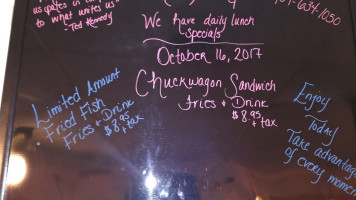 to what unites us"
- Ted Kennedy
634-1050
We have daily lunch
specials
October 16, 2017
Chuckwagon Sandwich
fries + Drink
$8.95
+ tax
Limited Amount
Fried Fish
Fries + Drink
$8.95
+ tax
Enjoy
Today
Take advantage
of every moment